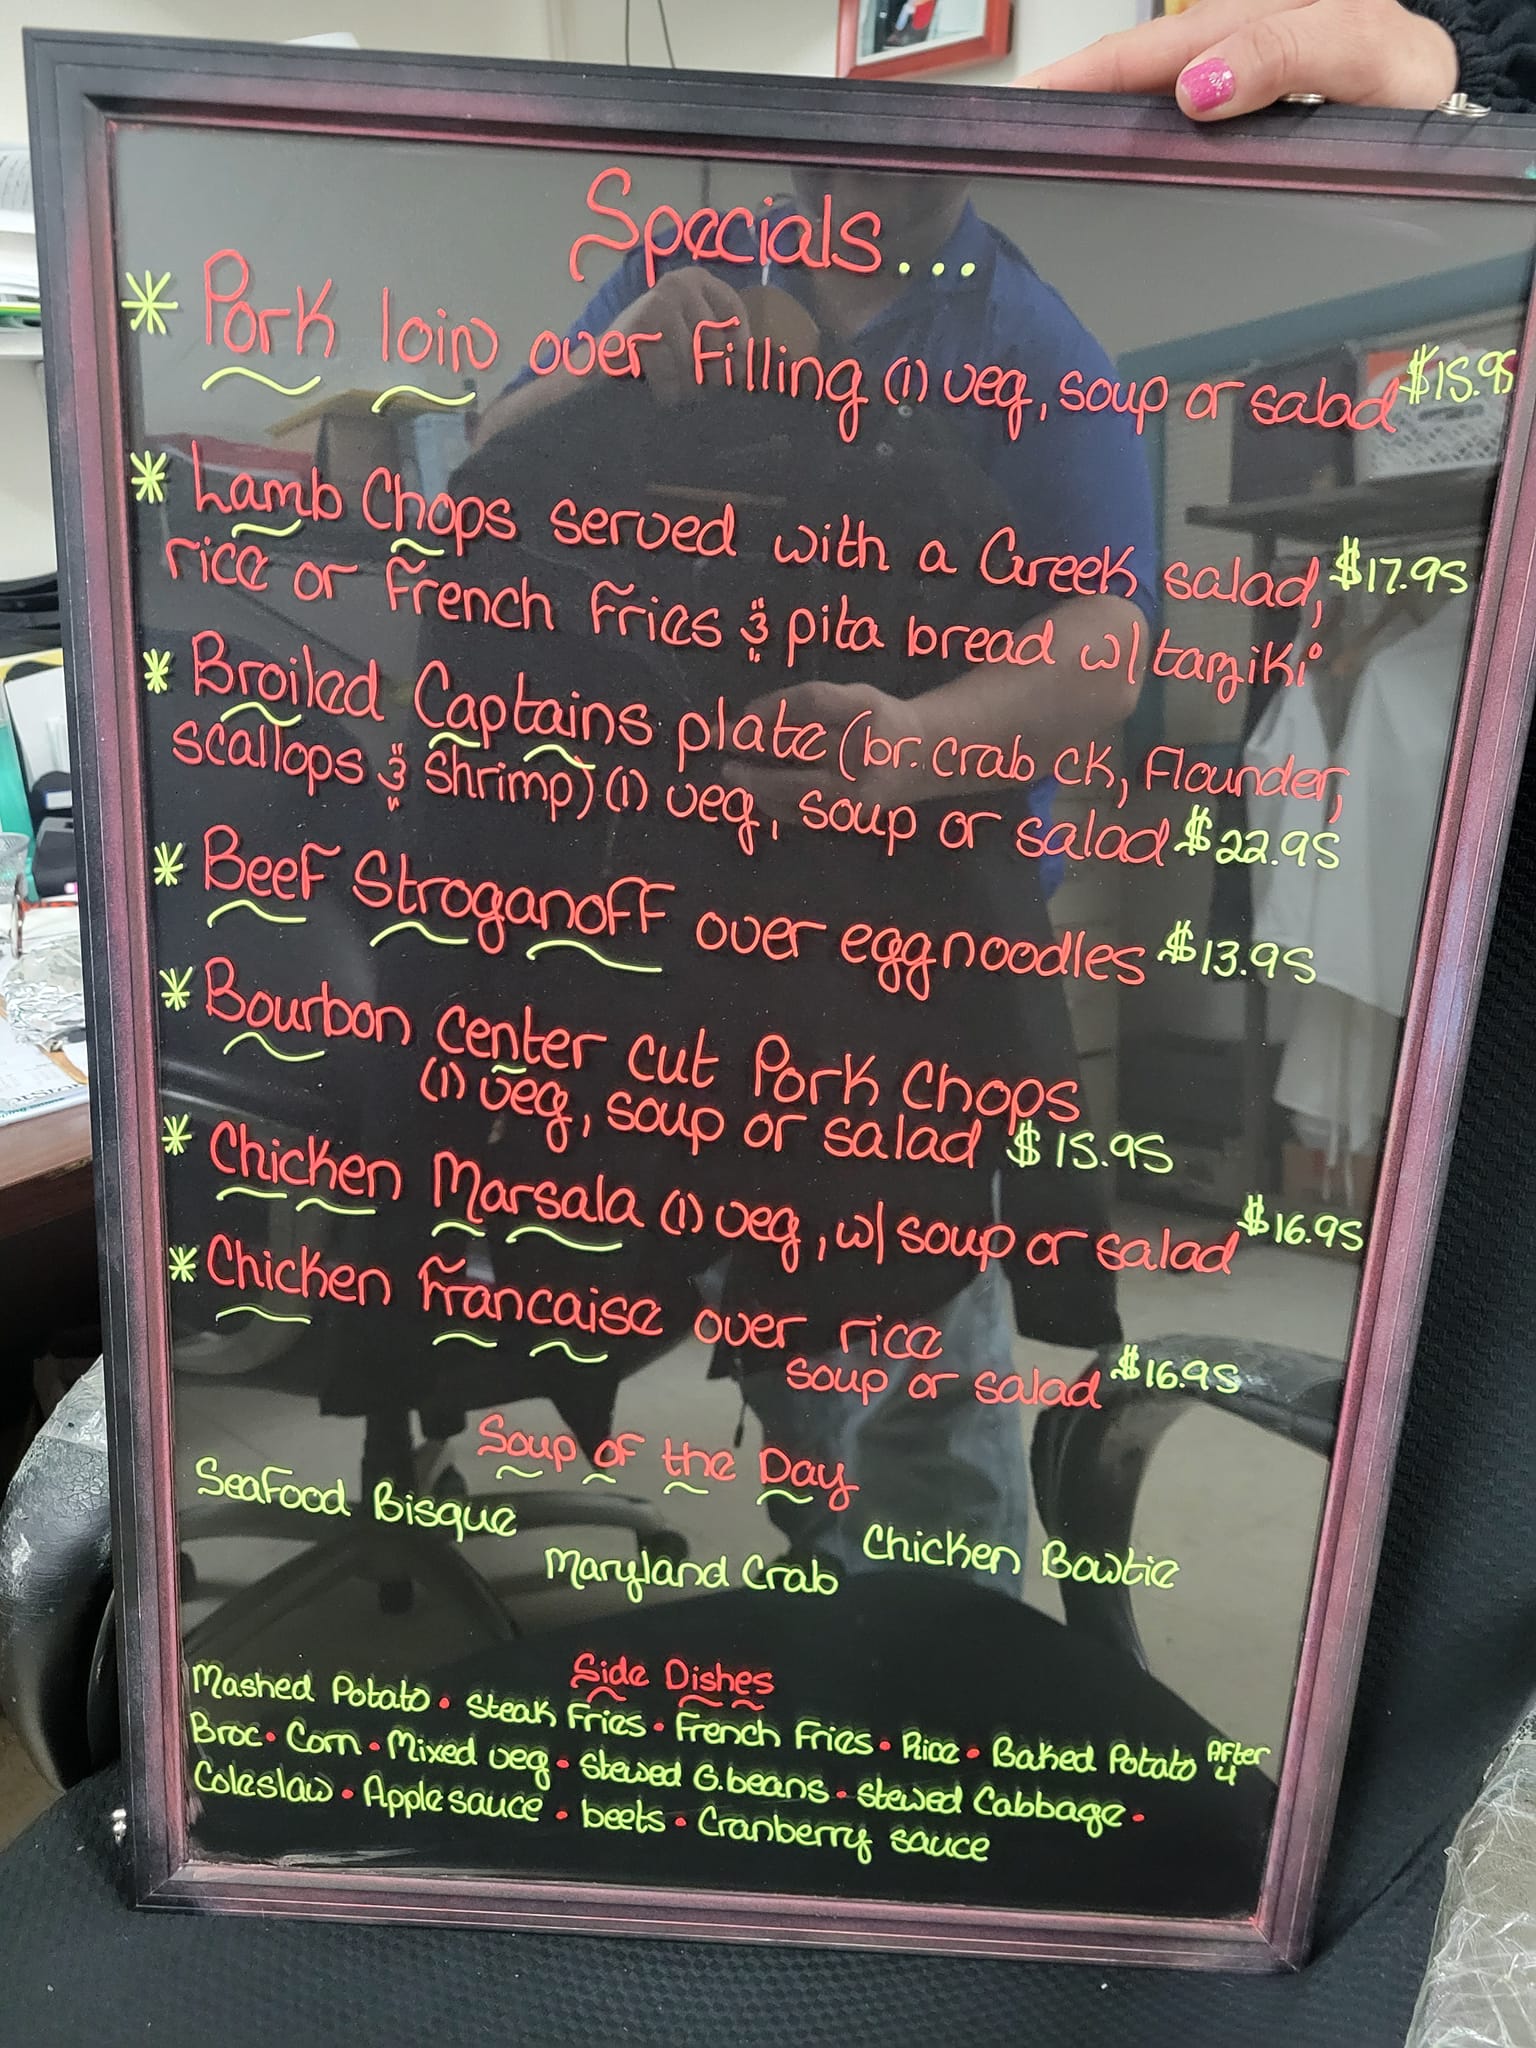 Specials...
* Pork loin over Filling (1) veg, soup or salad $15.95
* Lamb Chops served with a Greek salad, $17.95
rice or French Fries & pita bread w/ tarziki
* Broiled Captains plate (br. crab ck, Flounder,
scallops & Shrimp) (1) veg, soup or salad $22.95
* Beef Stroganoff over eggnoodles $13.95
* Bourbon center cut Pork Chops
(1) veg, soup or salad $15.95
* Chicken Marsala (1) veg, w/ soup or salad $16.95
* Chicken Francaise over rice
soup or salad $16.95
Soup of the Day
Seafood Bisque
Chicken Bowtie
Maryland Crab
Side Dishes
Mashed Potato • Steak Fries • French Fries • Rice • Baked Potato After 4
Broc • Corn • Mixed veg • Stewed G.beans • Stewed Cabbage •
Coleslaw • Applesauce • beets • Cranberry sauce